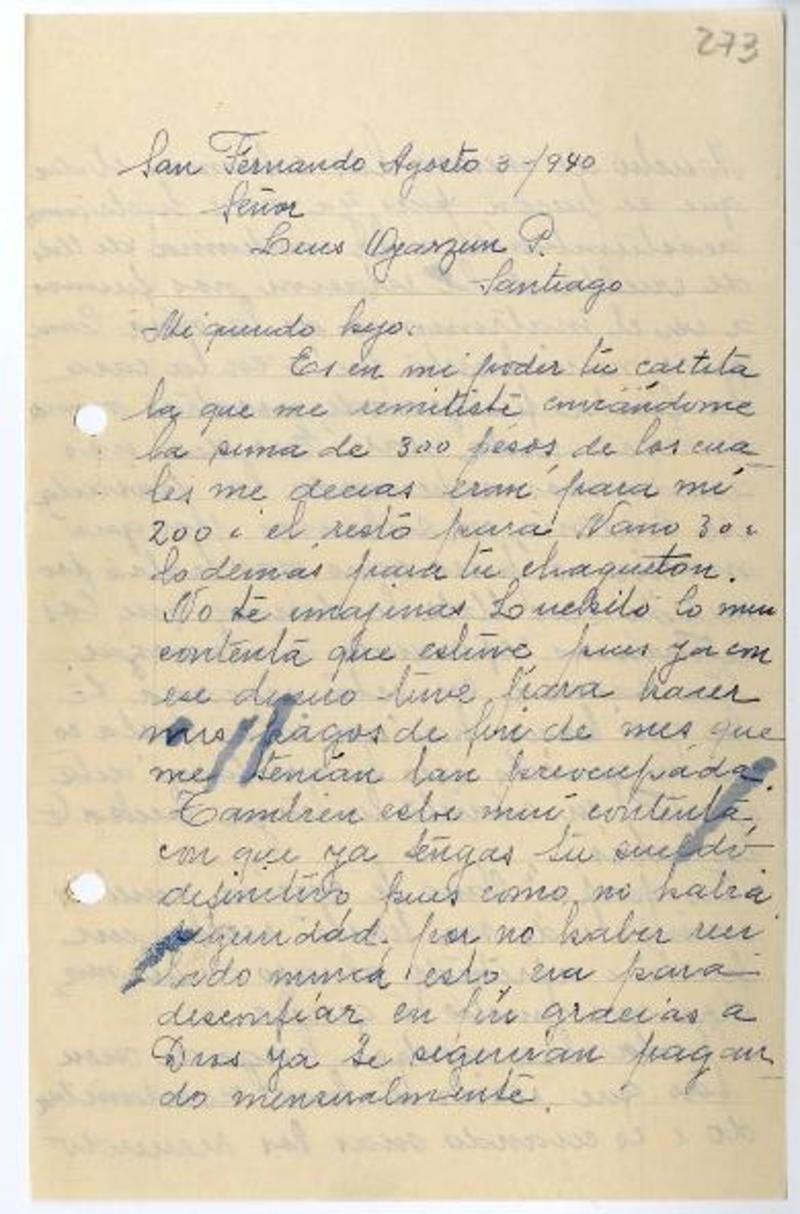 273
San Fernando Agosto 3-/940
Señor
Luis Oyarzun P.
Santiago
Mi querido hijo:
Es en mi poder tu cartita
la que me remitiste enviándome
la suma de 300 pesos de los cua
les me decias eran para mi
200 i el resto para Nano 30 i
lo demas para tu chaqueton.
No te imajinas Luchito lo mui
contenta que estuve pues ya con
ese dinero tuve para hacer
mis pagos de fin de mes que
me tenian tan preocupada.
Tambien estoi mui contenta
con que ya tengas tu sueldo
definitivo pues como no habia
seguridad, por no haber reci
bido nunca esto era para
desconfiar en fin gracias a
Dios ya te seguiran pagan
do mensualmente.